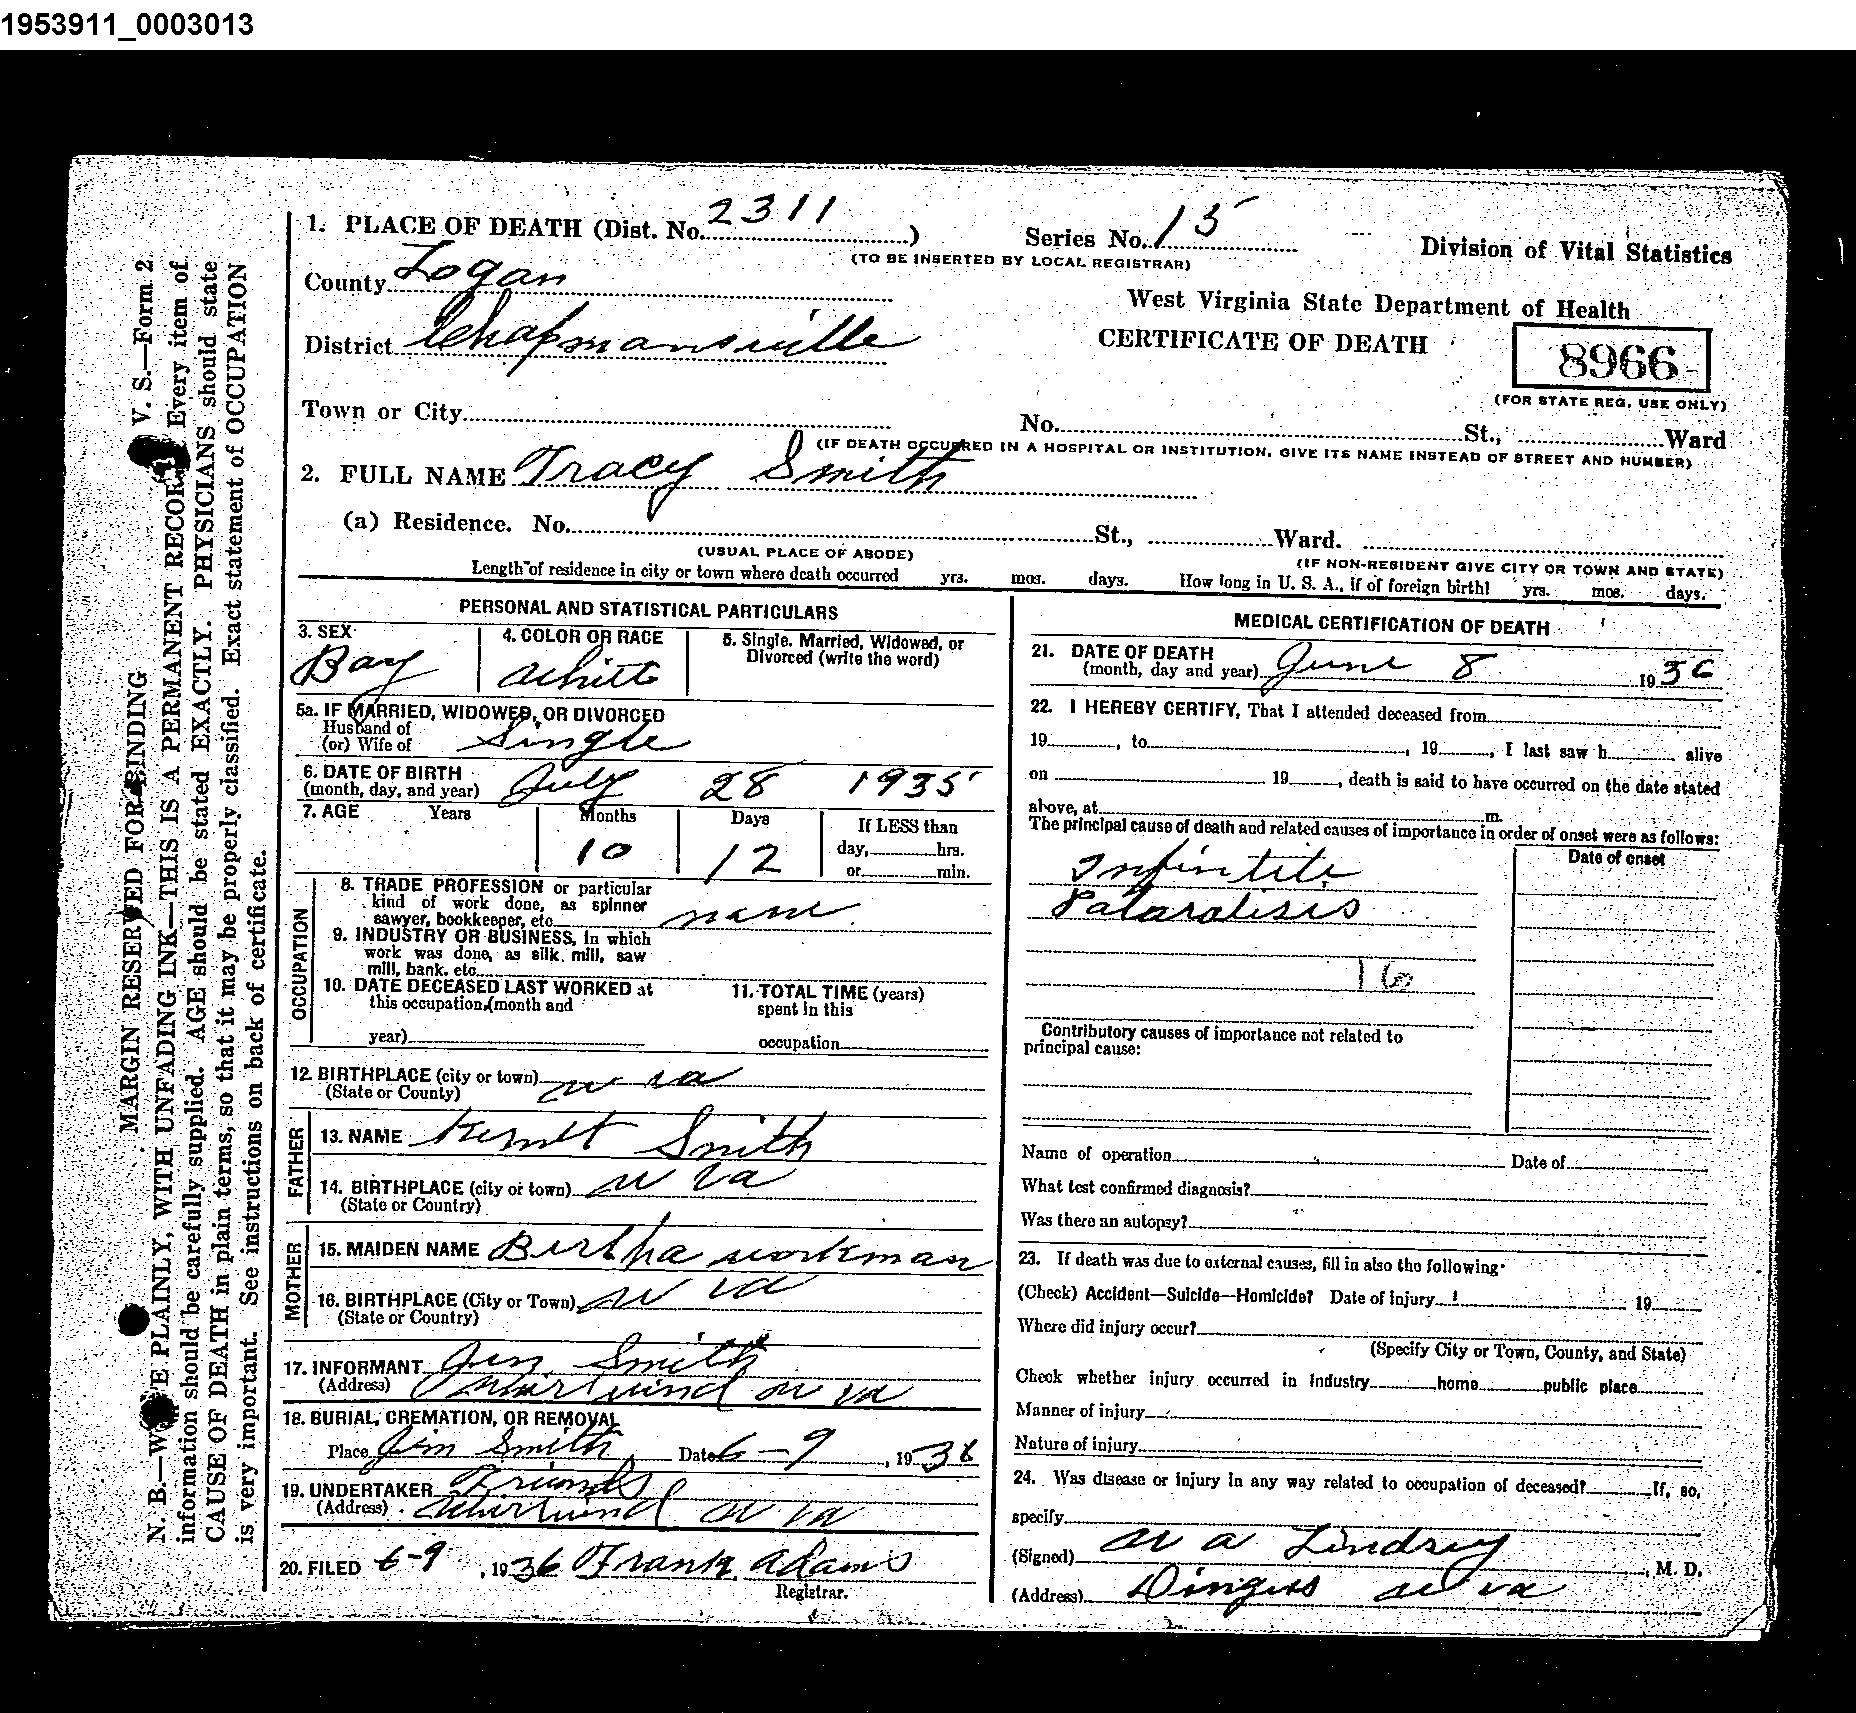 1953911_0003013
1. PLACE OF DEATH (Dist. No. 2311 )
Series No. 15
Division of Vital Statistics
(TO BE INSERTED BY LOCAL REGISTRAR)
County Logan
West Virginia State Department of Health
District Chapmansville
CERTIFICATE OF DEATH
8966
(FOR STATE REG. USE ONLY)
Town or City
No. St., Ward
(IF DEATH OCCURRED IN A HOSPITAL OR INSTITUTION, GIVE ITS NAME INSTEAD OF STREET AND NUMBER)
2. FULL NAME Tracy Smith
(a) Residence. No. St., Ward.
(USUAL PLACE OF ABODE)
(IF NON-RESIDENT GIVE CITY OR TOWN AND STATE)
Length of residence in city or town where death occurred yrs. mos. days. How long in U. S. A., if of foreign birth! yrs. mos. days.
PERSONAL AND STATISTICAL PARTICULARS
3. SEX
Boy
4. COLOR OR RACE
White
5. Single, Married, Widowed, or
Divorced (write the word)
5a. IF MARRIED, WIDOWED, OR DIVORCED
Husband of
(or) Wife of Single
6. DATE OF BIRTH
(month, day, and year) July 28 1935
7. AGE Years Months Days If LESS than
10 12 day, hrs.
or min.
OCCUPATION
8. TRADE PROFESSION or particular
kind of work done, as spinner
sawyer, bookkeeper, etc. none
9. INDUSTRY OR BUSINESS, in which
work was done, as silk mill, saw
mill, bank, etc.
10. DATE DECEASED LAST WORKED at
this occupation (month and
year)
11. TOTAL TIME (years)
spent in this
occupation
12. BIRTHPLACE (city or town) W Va
(State or County)
FATHER
13. NAME Smith
14. BIRTHPLACE (city or town) W Va
(State or Country)
MOTHER
15. MAIDEN NAME Bertha workman
16. BIRTHPLACE (City or Town) W Va
(State or Country)
17. INFORMANT Jim Smith
(Address) Whirlwind W Va
18. BURIAL, CREMATION, OR REMOVAL
Place Jim Smith Date 6-9, 1936
19. UNDERTAKER Friends
(Address) Whirlwind W Va
20. FILED 6-9, 1936 Frank Adams
Registrar.
MEDICAL CERTIFICATION OF DEATH
21. DATE OF DEATH
(month, day and year) June 8 1936
22. I HEREBY CERTIFY, That I attended deceased from
19 , to , 19 , I last saw h alive
on 19 , death is said to have occurred on the date stated
above, at m.
The principal cause of death and related causes of importance in order of onset were as follows:
Date of onset
Infintile
Palaralisis
16
Contributory causes of importance not related to
principal cause:
Name of operation Date of
What test confirmed diagnosis?
Was there an autopsy?
23. If death was due to external causes, fill in also the following:
(Check) Accident—Suicide—Homicide? Date of injury 19
Where did injury occur?
(Specify City or Town, County, and State)
Check whether injury occurred in industry home public place
Manner of injury
Nature of injury
24. Was disease or injury in any way related to occupation of deceased? If, so,
specify
(Signed) W A Lindsey, M. D.
(Address) Dingess W Va
MARGIN RESERVED FOR BINDING V. S.—Form 2
N. B.—W E PLAINLY, WITH UNFADING INK—THIS IS A PERMANENT RECOR Every item of
information should be carefully supplied. AGE should be stated EXACTLY. PHYSICIANS should state
CAUSE OF DEATH in plain terms, so that it may be properly classified. Exact statement of OCCUPATION
is very important. See instructions on back of certificate.